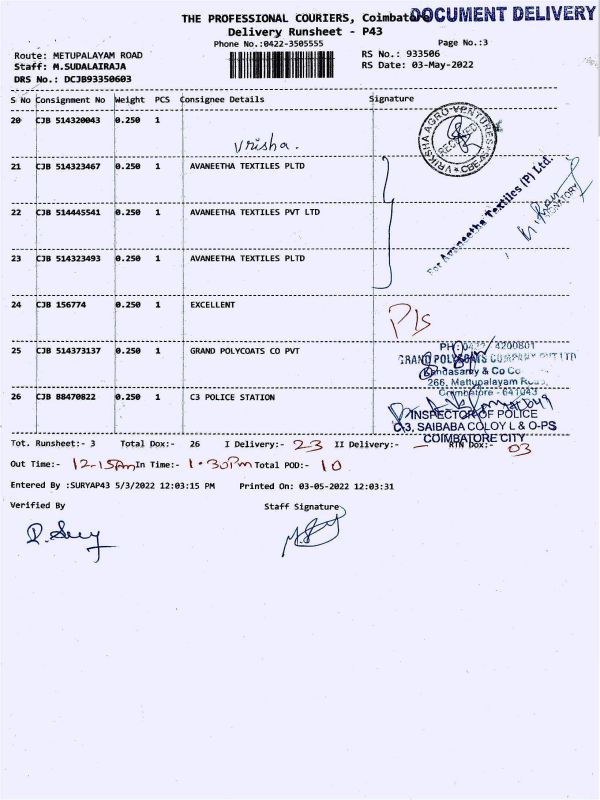 THE PROFESSIONAL COURIERS, Coimbatore
DOCUMENT DELIVERY
Delivery Runsheet - P43
Phone No.:0422-3505555
Page No.:3
Route: METUPALAYAM ROAD
RS No.: 933506
Staff: M.SUDALAIRAJA
RS Date: 03-May-2022
DRS No.: DCJB93350603
S No Consignment No Weight PCS Consignee Details Signature
20 CJB 514320043 0.250 1
Vrisha.
VRIKSHA AGRO VENTURES
RECEIVED
CBE
21 CJB 514323467 0.250 1 AVANEETHA TEXTILES PLTD
For Avaneetha Textiles (P) Ltd.
22 CJB 514445541 0.250 1 AVANEETHA TEXTILES PVT LTD
23 CJB 514323493 0.250 1 AVANEETHA TEXTILES PLTD
24 CJB 156774 0.250 1 EXCELLENT
P/s
PH: 0422/ 4200801
25 CJB 514373137 0.250 1 GRAND POLYCOATS CO PVT
GRAND POLYCOATS COMPANY PVT LTD
Kandasamy & Co
266, Mettupalayam Road,
Coimbatore - 641043
26 CJB 88470822 0.250 1 C3 POLICE STATION
INSPECTOR OF POLICE
C-3, SAIBABA COLOY L & O-PS
COIMBATORE CITY
Tot. Runsheet:- 3 Total Dox:- 26 I Delivery:- 23 II Delivery:- - RTN Dox:- 03
Out Time:- 12-15Am In Time:- 1.30Pm Total POD:- 10
Entered By :SURYAP43 5/3/2022 12:03:15 PM Printed On: 03-05-2022 12:03:31
Verified By Staff Signature